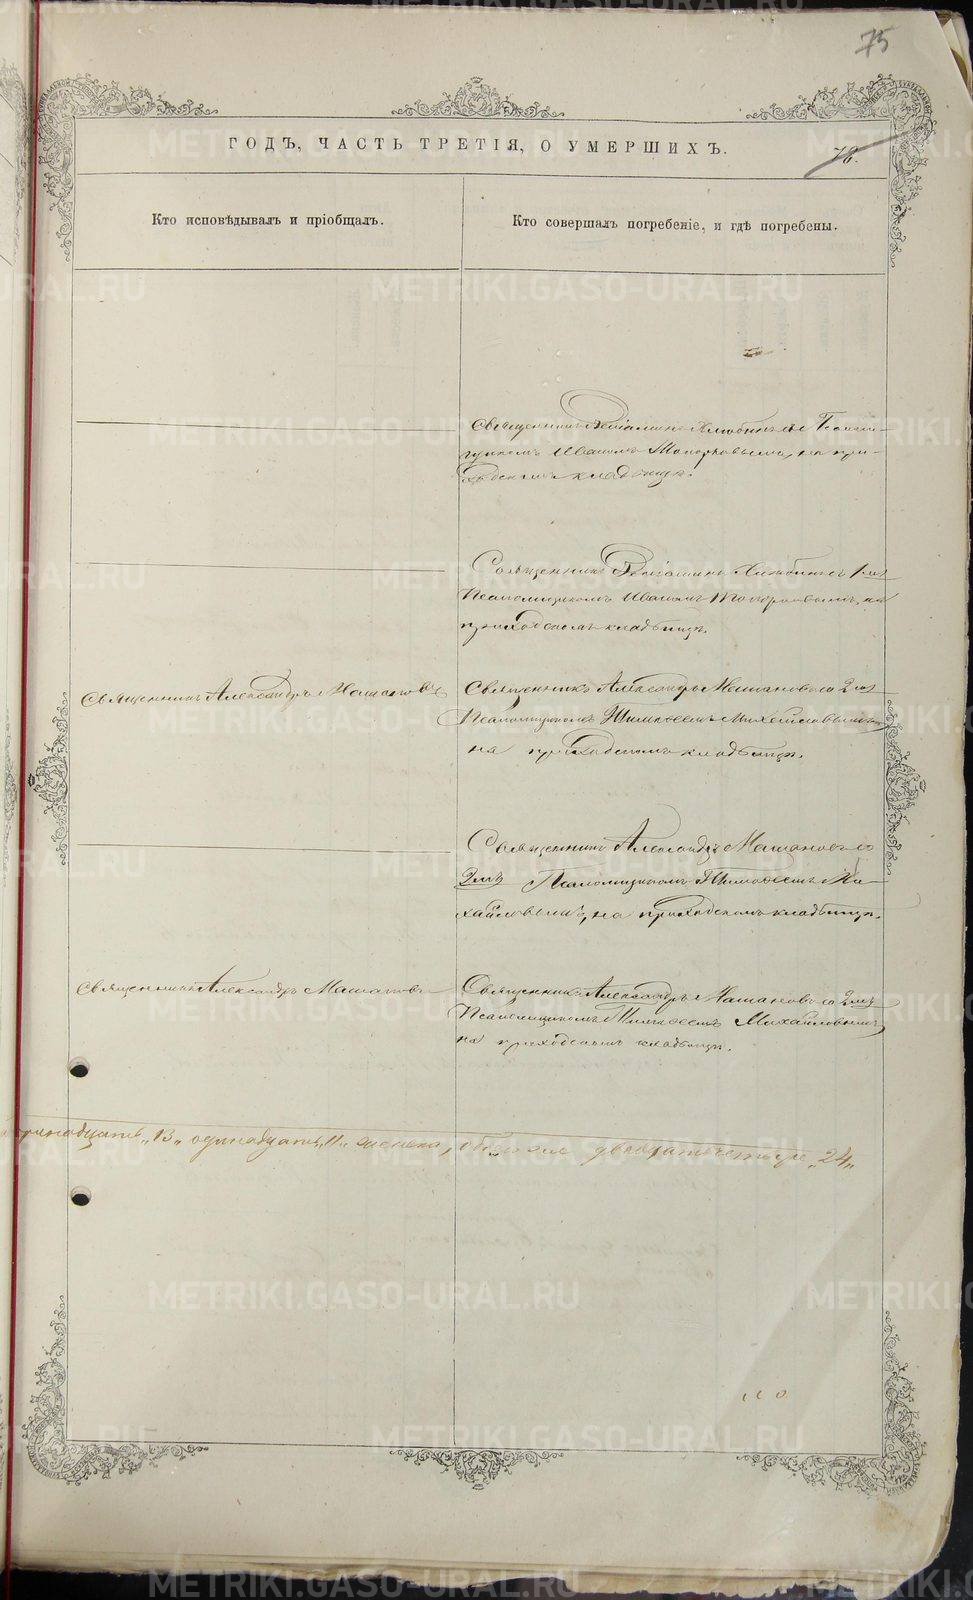 75
ГОДЪ, ЧАСТЬ ТРЕТІЯ, О УМЕРШИХЪ.
78.
Кто исповѣдывалъ и пріобщалъ.
Кто совершалъ погребеніе, и гдѣ погребены.
Священникъ Веніаминъ съ Псалом-
щикомъ Иваномъ Топорковымъ, на при-
ходскомъ кладбищѣ.
Священникъ Веніаминъ съ 1мъ
Псаломщикомъ Иваномъ Топорковымъ, на
приходскомъ кладбищѣ.
Священникъ Александръ Машановъ
Священникъ Александръ Машановъ со 2мъ
Псаломщикомъ Тимофеемъ Михайловымъ
на приходскомъ кладбищѣ.
Священникъ Александръ Машановъ со
2мъ Псаломщикомъ Тимофеемъ Ми-
хайловымъ, на приходскомъ кладбищѣ.
Священникъ Александръ Машановъ
Священникъ Александръ Машановъ со 2мъ
Псаломщикомъ Тимофеемъ Михайловымъ
на приходскомъ кладбищѣ.
тринадцать „13„ одинадцать „11„ женска, обоего двадцать четыре „24„
METRIKI.GASO-URAL.RU